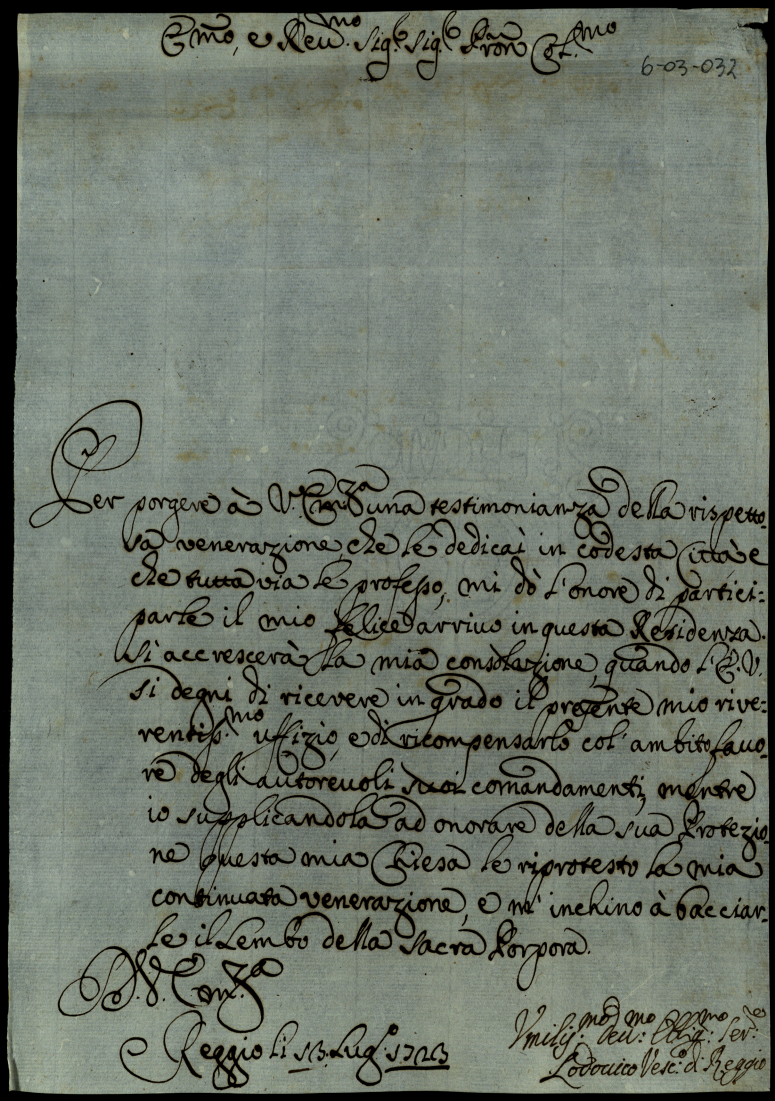 Em̃o, e Reu.mo Sig.r Sig.r Pron̄ Col.mo
6-03-032
Per porgere à V. Em.za una testimonianza della rispetto-
sa venerazione, che le dedicai in codesta Città e
che tutta via le professo, mi dò l'onore di partici-
parle il mio felice arrivo in questa Residenza.
Si accrescerà la mia consolazione, quando l'E.V.
si degni di ricevere in grado il presente mio rive-
rentiss.mo uffizio, e di ricompensarlo col' ambito favo-
re degli autorevoli suoi comandamenti, mentre
io supplicandola ad onorare della sua Protezio-
ne questa mia Chiesa le riprotesto la mia
continuata venerazione, e m' inchino à bacciar-
le il Lembo della Sacra Porpora.
D. V. Em.za
Reggio li 13. Lug.o 1723
Vmiliss.mo Deu.mo Obblig.mo Ser.re
Lodouico Vesc.o di Reggio